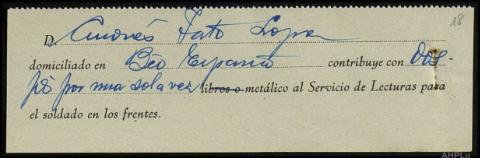 18
D. Andrés Tato Lopez
domiciliado en Bço España contribuye con Dos
pts por una sola vez libros o metálico al Servicio de Lecturas para
el soldado en los frentes.
AHPLU